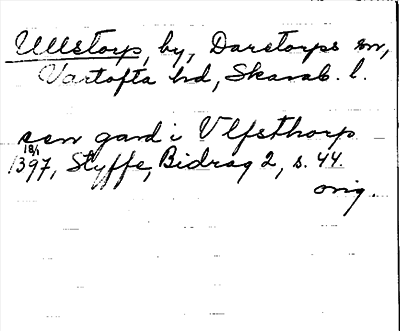 Ullstorp, by, Darstorps sn,
Vartofta hd, Skarab. l.
een gard i Vlfsthorp
18/1
1397, Styffe, Bidrag 2, s. 44.
orig.